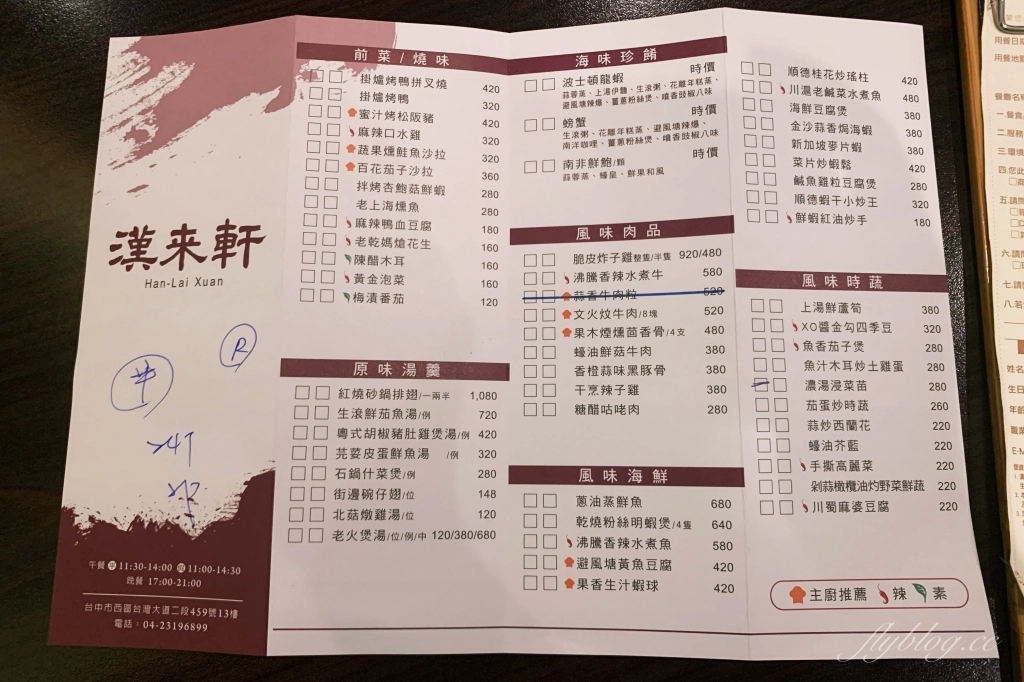 漢来軒
Han-Lai Xuan
R
午餐 平 11:30-14:00 假 11:00-14:30
晚餐 17:00-21:00
台中市西區台灣大道二段459號13樓
電話：04-23196899
前菜/燒味
掛爐烤鴨拼叉燒 420
掛爐烤鴨 320
蜜汁烤松阪豬 420
麻辣口水雞 320
蔬果燻鮭魚沙拉 320
百花茄子沙拉 360
拌烤杏鮑菇鮮蝦 280
老上海燻魚 280
麻辣鴨血豆腐 180
老乾媽熗花生 160
陳醋木耳 160
黃金泡菜 160
梅漬番茄 120
原味湯羹
紅燒砂鍋排翅/一兩半 1,080
生滾鮮茄魚湯/例 720
粵式胡椒豬肚雞煲湯/例 420
芫荽皮蛋鮮魚湯 /例 320
石鍋什菜煲/例 280
街邊碗仔翅/位 148
北菇燉雞湯/位 120
老火煲湯/位/例/中 120/380/680
海味珍餚
波士頓龍蝦 時價
蒜蓉蒸、上湯伊麵、生滾粥、花雕年糕蒸、
避風塘辣爆、薑蔥粉絲煲、噴香豉椒八味
螃蟹 時價
生滾粥、花雕年糕蒸、避風塘辣爆、
南洋咖哩、薑蔥粉絲煲、噴香豉椒八味
南非鮮鮑/顆 時價
蒜蓉蒸、蠔皇、鮮果和風
風味肉品
脆皮炸子雞整隻/半隻 920/480
沸騰香辣水煮牛 580
蒜香牛肉粒 520
文火炆牛肉/8塊 520
果木煙燻茴香骨/4支 480
蠔油鮮菇牛肉 380
香橙蒜味黑豚骨 380
干烹辣子雞 380
糖醋咕咾肉 280
風味海鮮
蔥油蒸鮮魚 680
乾燒粉絲明蝦煲/4隻 640
沸騰香辣水煮魚 580
避風塘黃魚豆腐 420
果香生汁蝦球 420
順德桂花炒瑤柱 420
川滬老鹹菜水煮魚 480
海鮮豆腐煲 380
金沙蒜香焗海蝦 380
新加坡麥片蝦 380
菜片炒蝦鬆 420
鹹魚雞粒豆腐煲 280
順德蝦干小炒王 320
鮮蝦紅油炒手 180
風味時蔬
上湯鮮蘆筍 380
XO醬金勾四季豆 320
魚香茄子煲 280
魚汁木耳炒土雞蛋 280
濃湯浸菜苗 280
茄蛋炒時蔬 260
蒜炒西蘭花 220
蠔油芥藍 220
手撕高麗菜 220
剁蒜橄欖油灼野菜鮮蔬 220
川蜀麻婆豆腐 220
主廚推薦 辣 素
flyblog.cc